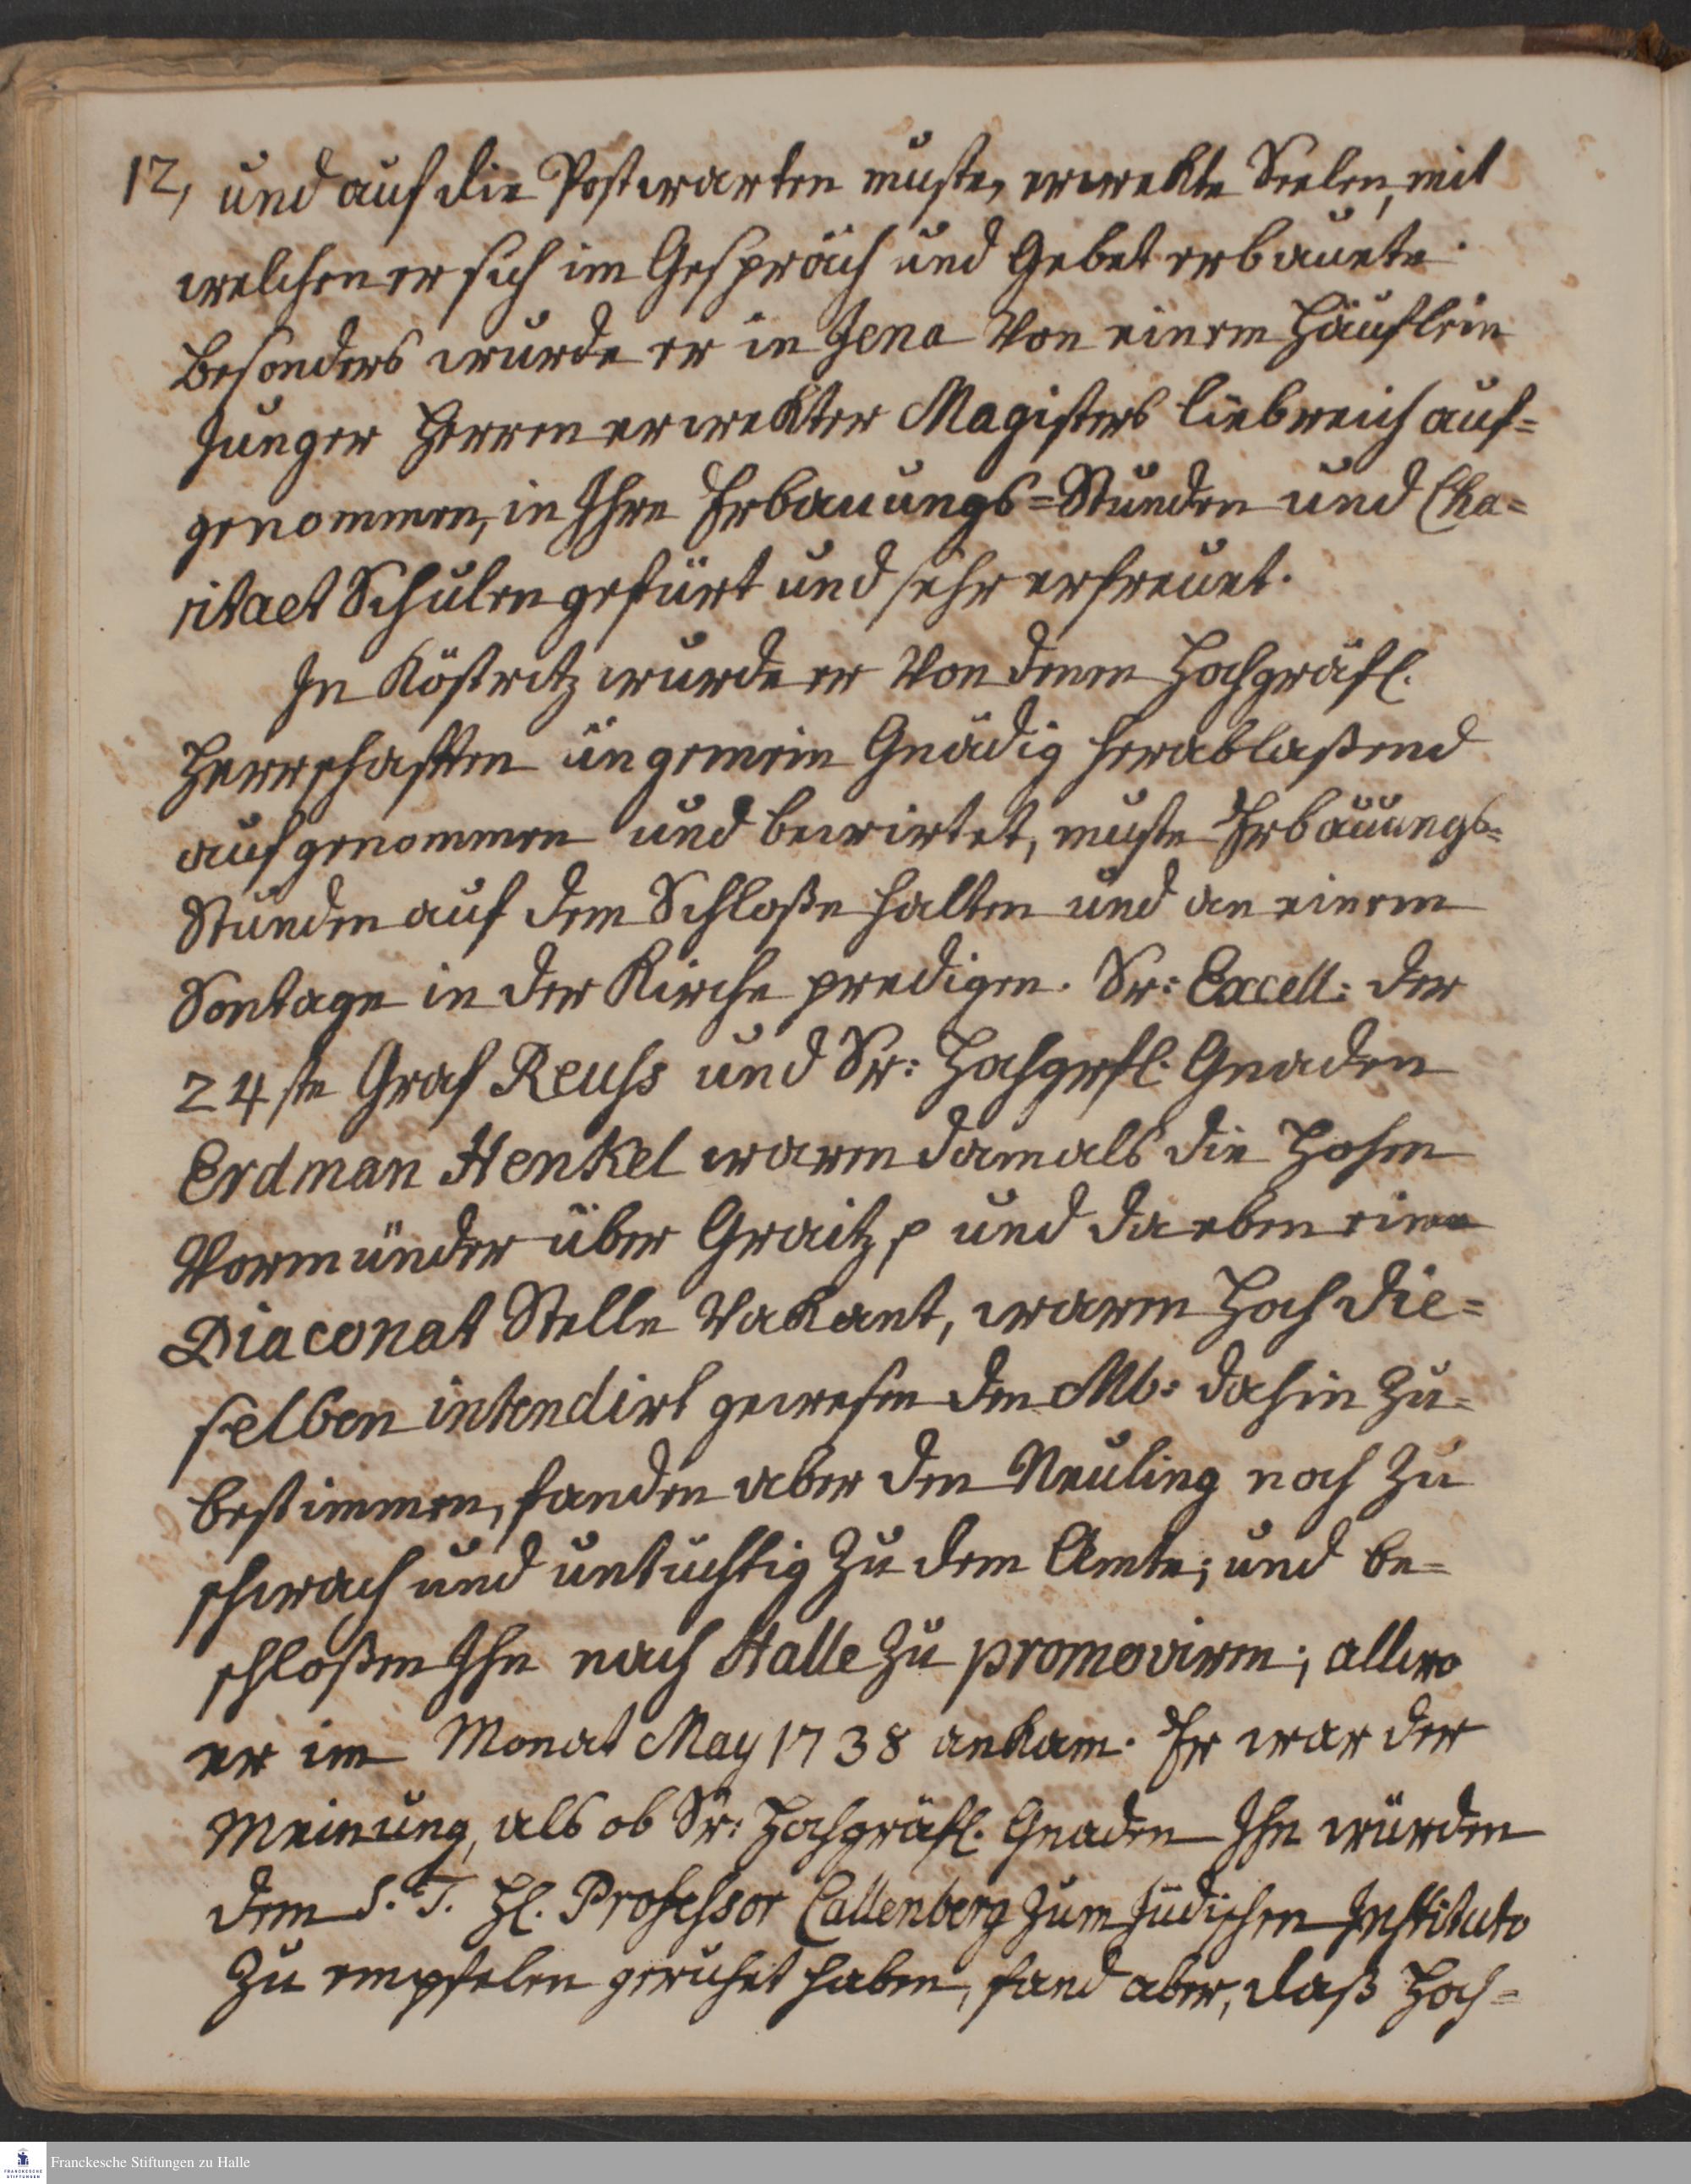 12, und auf die Post warten muste, erwekte Seelen, mit
welchen er sich im Gespräch und Gebet erbauete.
Besonders wurde er in Jena von einem Häuflein
Junger Herren erwekter Magisters liebreich auf=
genommen, in Ihre Erbauungs=Stunden und Cha=
ritaet Schulen gefürt und sehr erfreuet.
In Köstritz wurde er von denen Hochgräfl.
Herrschafften ungemein Gnädig herablaßend
aufgenommen und bewirtet, muste Erbauungs=
Stunden auf dem Schloße halten und an einem
Sontage in der Kirche predigen. Sr: Excell: der
24ste Graf Reuss und Sr: Hochgrfl. Gnaden
Erdman Henkel waren damals die Hohen
Vormünder über Graitz, und da eben eine
Diaconat Stelle Vakant, waren Hoch die=
selben intendirt gewesen den Mb: dahin zu=
bestimmen, fanden aber den Neuling noch zu
schwach und untüchtig zu dem Amte; und be=
schloßen Ihn nach Halle zu promoviren; allwo
er im Monat May 1738 ankam. Er war der
Meinung, als ob Sr: Hochgräfl. Gnaden Ihn würden
dem S. T. H. Professor Callenberg zum Jüdischen Instituto
zu empfelen geruhet haben, fand aber, daß Hoch=
Franckesche Stiftungen zu Halle
FRANCKESCHE
STIFTUNGEN